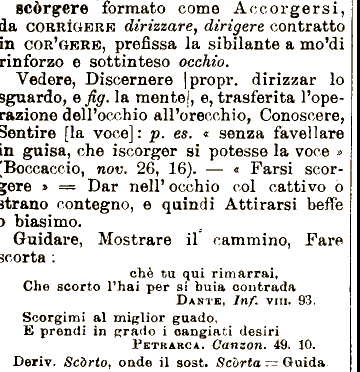 scòrgere formato come Accorgersi,
da CORRÍGERE dirizzare, dirigere contratto
in COR'GERE, prefissa la sibilante a mo'di
rinforzo e sottinteso occhio.
Vedere, Discernere [propr. dirizzar lo
sguardo, e fig. la mente], e, trasferita l'ope-
razione dell'occhio all'orecchio, Conoscere,
Sentire [la voce]: p. es. « senza favellare
in guisa, che iscorger si potesse la voce »
(Boccaccio, nov. 26, 16). — « Farsi scor-
gere » = Dar nell'occhio col cattivo o
strano contegno, e quindi Attirarsi beffe
o biasimo.
Guidare, Mostrare il cammino, Fare
scorta:
chè tu qui rimarrai,
Che scorto l'hai per sì buia contrada
DANTE, Inf. VIII. 93.
Scorgimi al miglior guado,
E prendi in grado i cangiati desiri
PETRARCA. Canzon. 49. 10.
Deriv. Scòrto, onde il sost. Scòrta = Guida